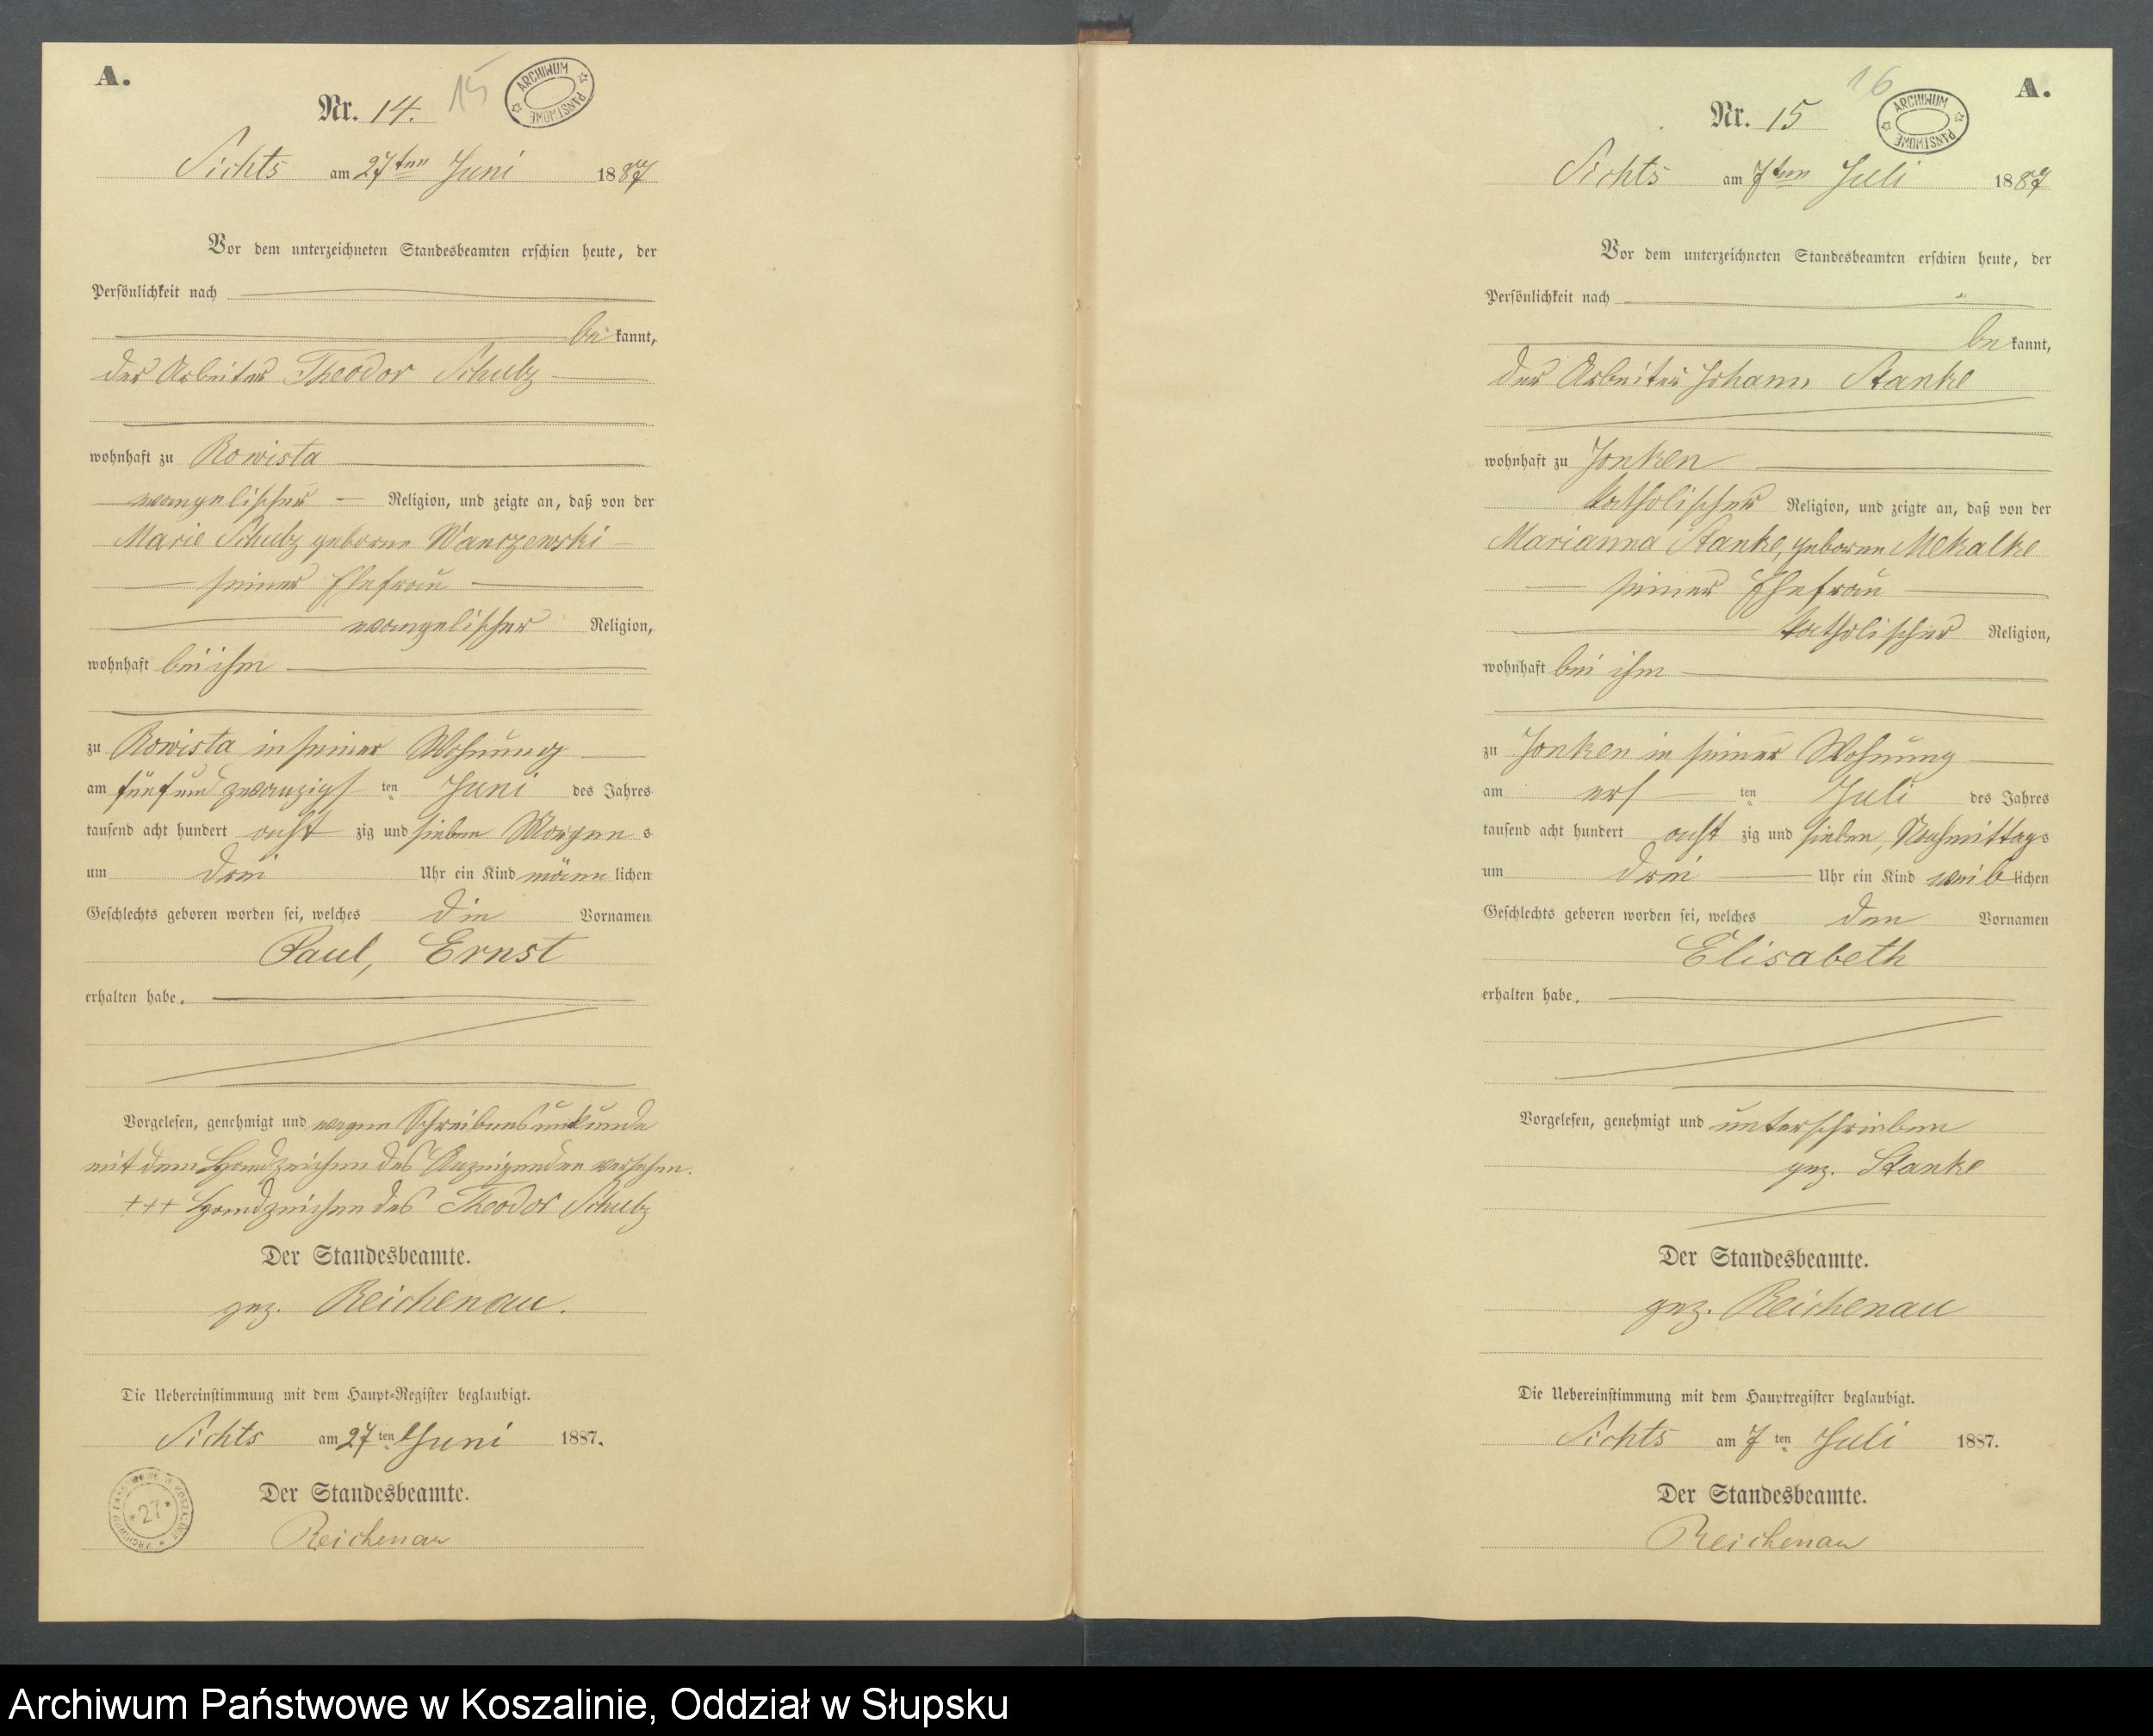 A.
Nr. 14.
15
ARCHIWUM PAŃSTWOWE
Sichts am 27ten Juni 1887
Vor dem unterzeichneten Standesbeamten erschien heute, der
Persönlichkeit nach
bekannt,
der Arbeiter Theodor Schulz
wohnhaft zu Rowista
evangelischer Religion, und zeigte an, daß von der
Marie Schulz geborne Wanczewski
seiner Ehefrau
evangelischer Religion,
wohnhaft bei ihm
zu Rowista in seiner Wohnung
am fünf und zwanzigsten Juni des Jahres
tausend acht hundert acht zig und sieben Morgens
um drei Uhr ein Kind männlichen
Geschlechts geboren worden sei, welches die Vornamen
Paul, Ernst
erhalten habe.
Vorgelesen, genehmigt und wegen Schreibensunkunde
mit dem Handzeichen des Anzeigenden versehen.
+++ Handzeichen des Theodor Schulz
Der Standesbeamte.
gez. Reichenau.
Die Uebereinstimmung mit dem Haupt-Register beglaubigt.
Sichts am 27ten Juni 1887.
Der Standesbeamte.
Reichenau
27
A.
Nr. 15
16
ARCHIWUM PAŃSTWOWE
Sichts am 7ten Juli 1887
Vor dem unterzeichneten Standesbeamten erschien heute, der
Persönlichkeit nach
bekannt,
der Arbeiter Johann Stanke
wohnhaft zu Jonken
katholischer Religion, und zeigte an, daß von der
Marianna Stanke, geborne Mekalke
seiner Ehefrau
katholischer Religion,
wohnhaft bei ihm
zu Jonken in seiner Wohnung
am ersten Juli des Jahres
tausend acht hundert acht zig und sieben, Nachmittags
um drei Uhr ein Kind weiblichen
Geschlechts geboren worden sei, welches den Vornamen
Elisabeth
erhalten habe.
Vorgelesen, genehmigt und unterschrieben
gez. Stanke
Der Standesbeamte.
gez. Reichenau
Die Uebereinstimmung mit dem Hauptregister beglaubigt.
Sichts am 7ten Juli 1887.
Der Standesbeamte.
Reichenau
Archiwum Państwowe w Koszalinie, Oddział w Słupsku